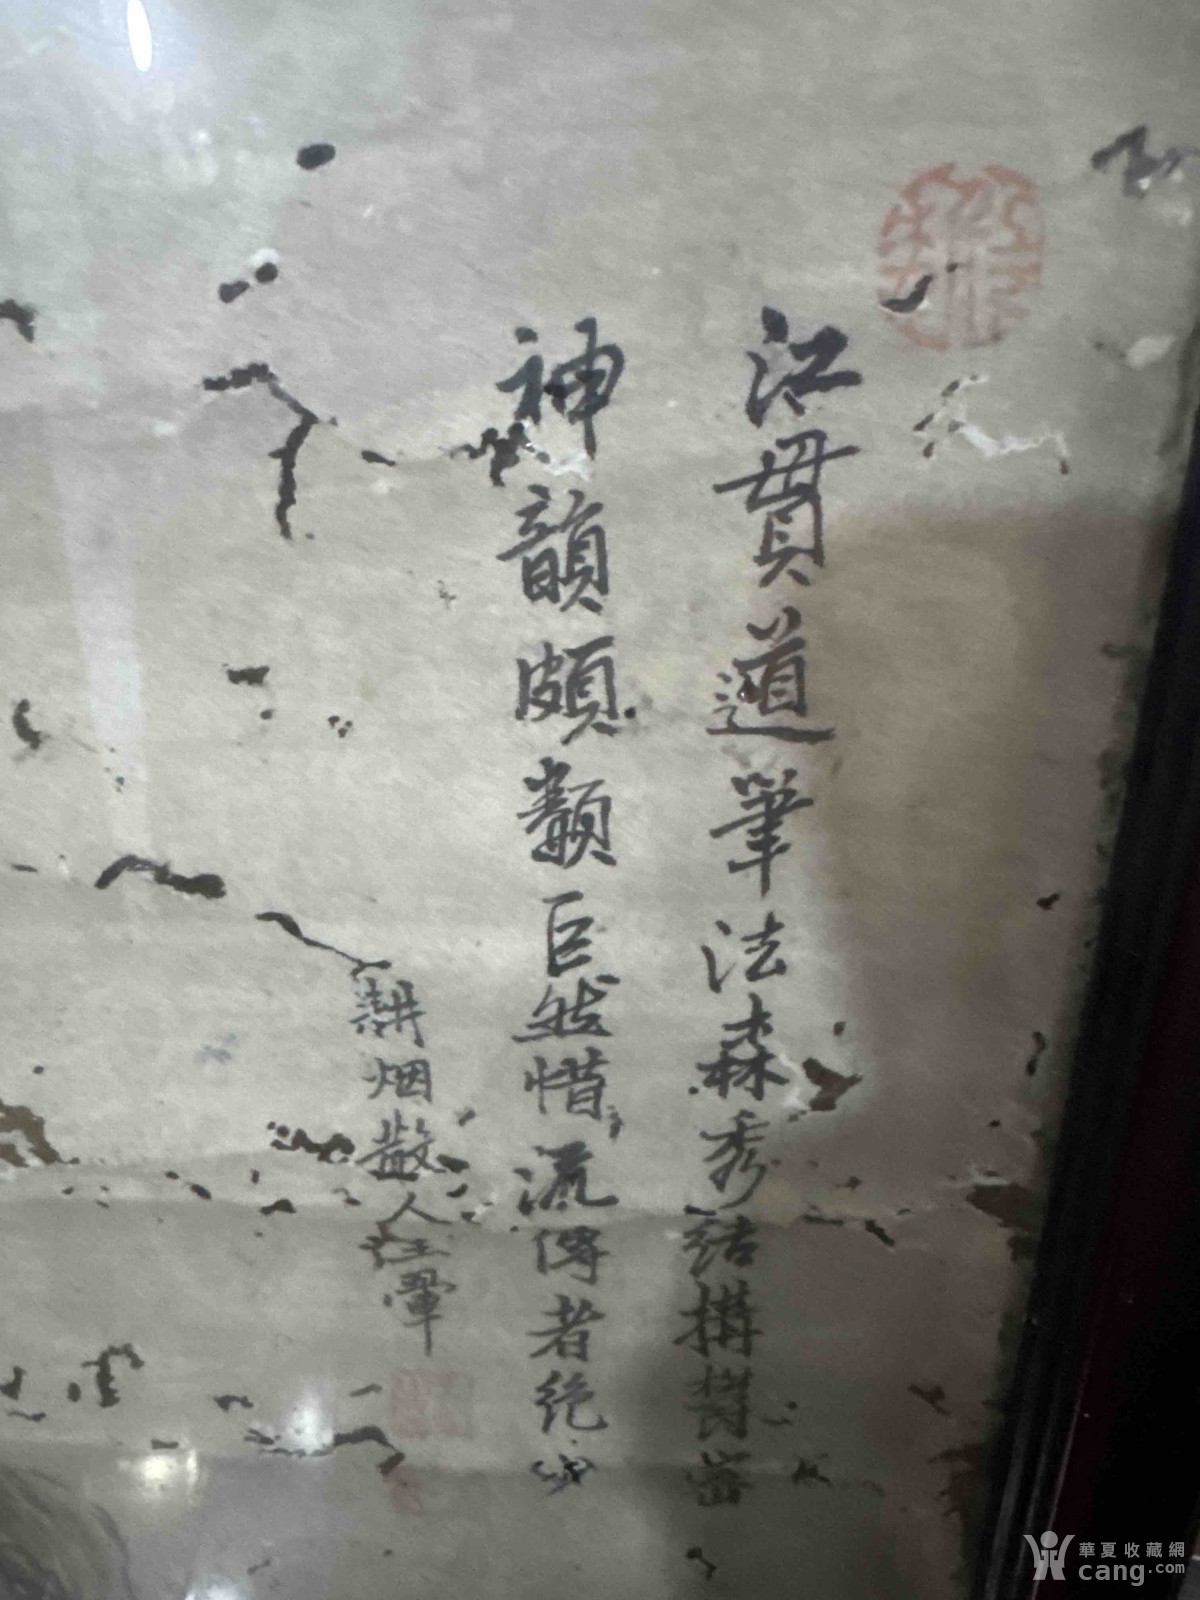 江貫道筆法森秀結構樸密
神韻頗類巨然惜流傳者絕少
耕烟散人王翬
華夏收藏網
cang.com